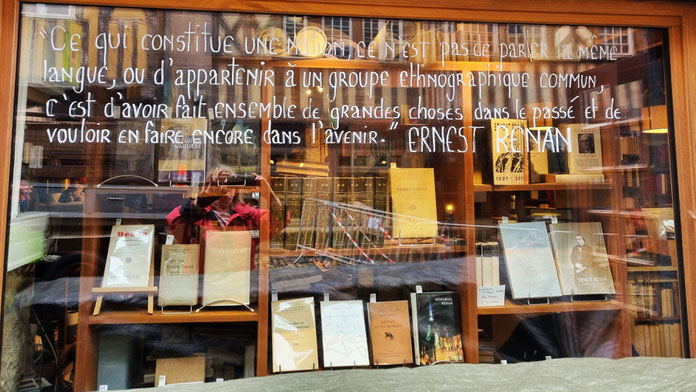 "CE QUI CONSTITUE UNE NATION, CE N'EST PAS DE PARLER LA MÊME
LANGUE, OU D'APPARTENIR À UN GROUPE ETHNOGRAPHIQUE COMMUN,
C'EST D'AVOIR FAIT ENSEMBLE DE GRANDES CHOSES DANS LE PASSÉ ET DE
VOULOIR EN FAIRE ENCORE DANS L'AVENIR." ERNEST RENAN